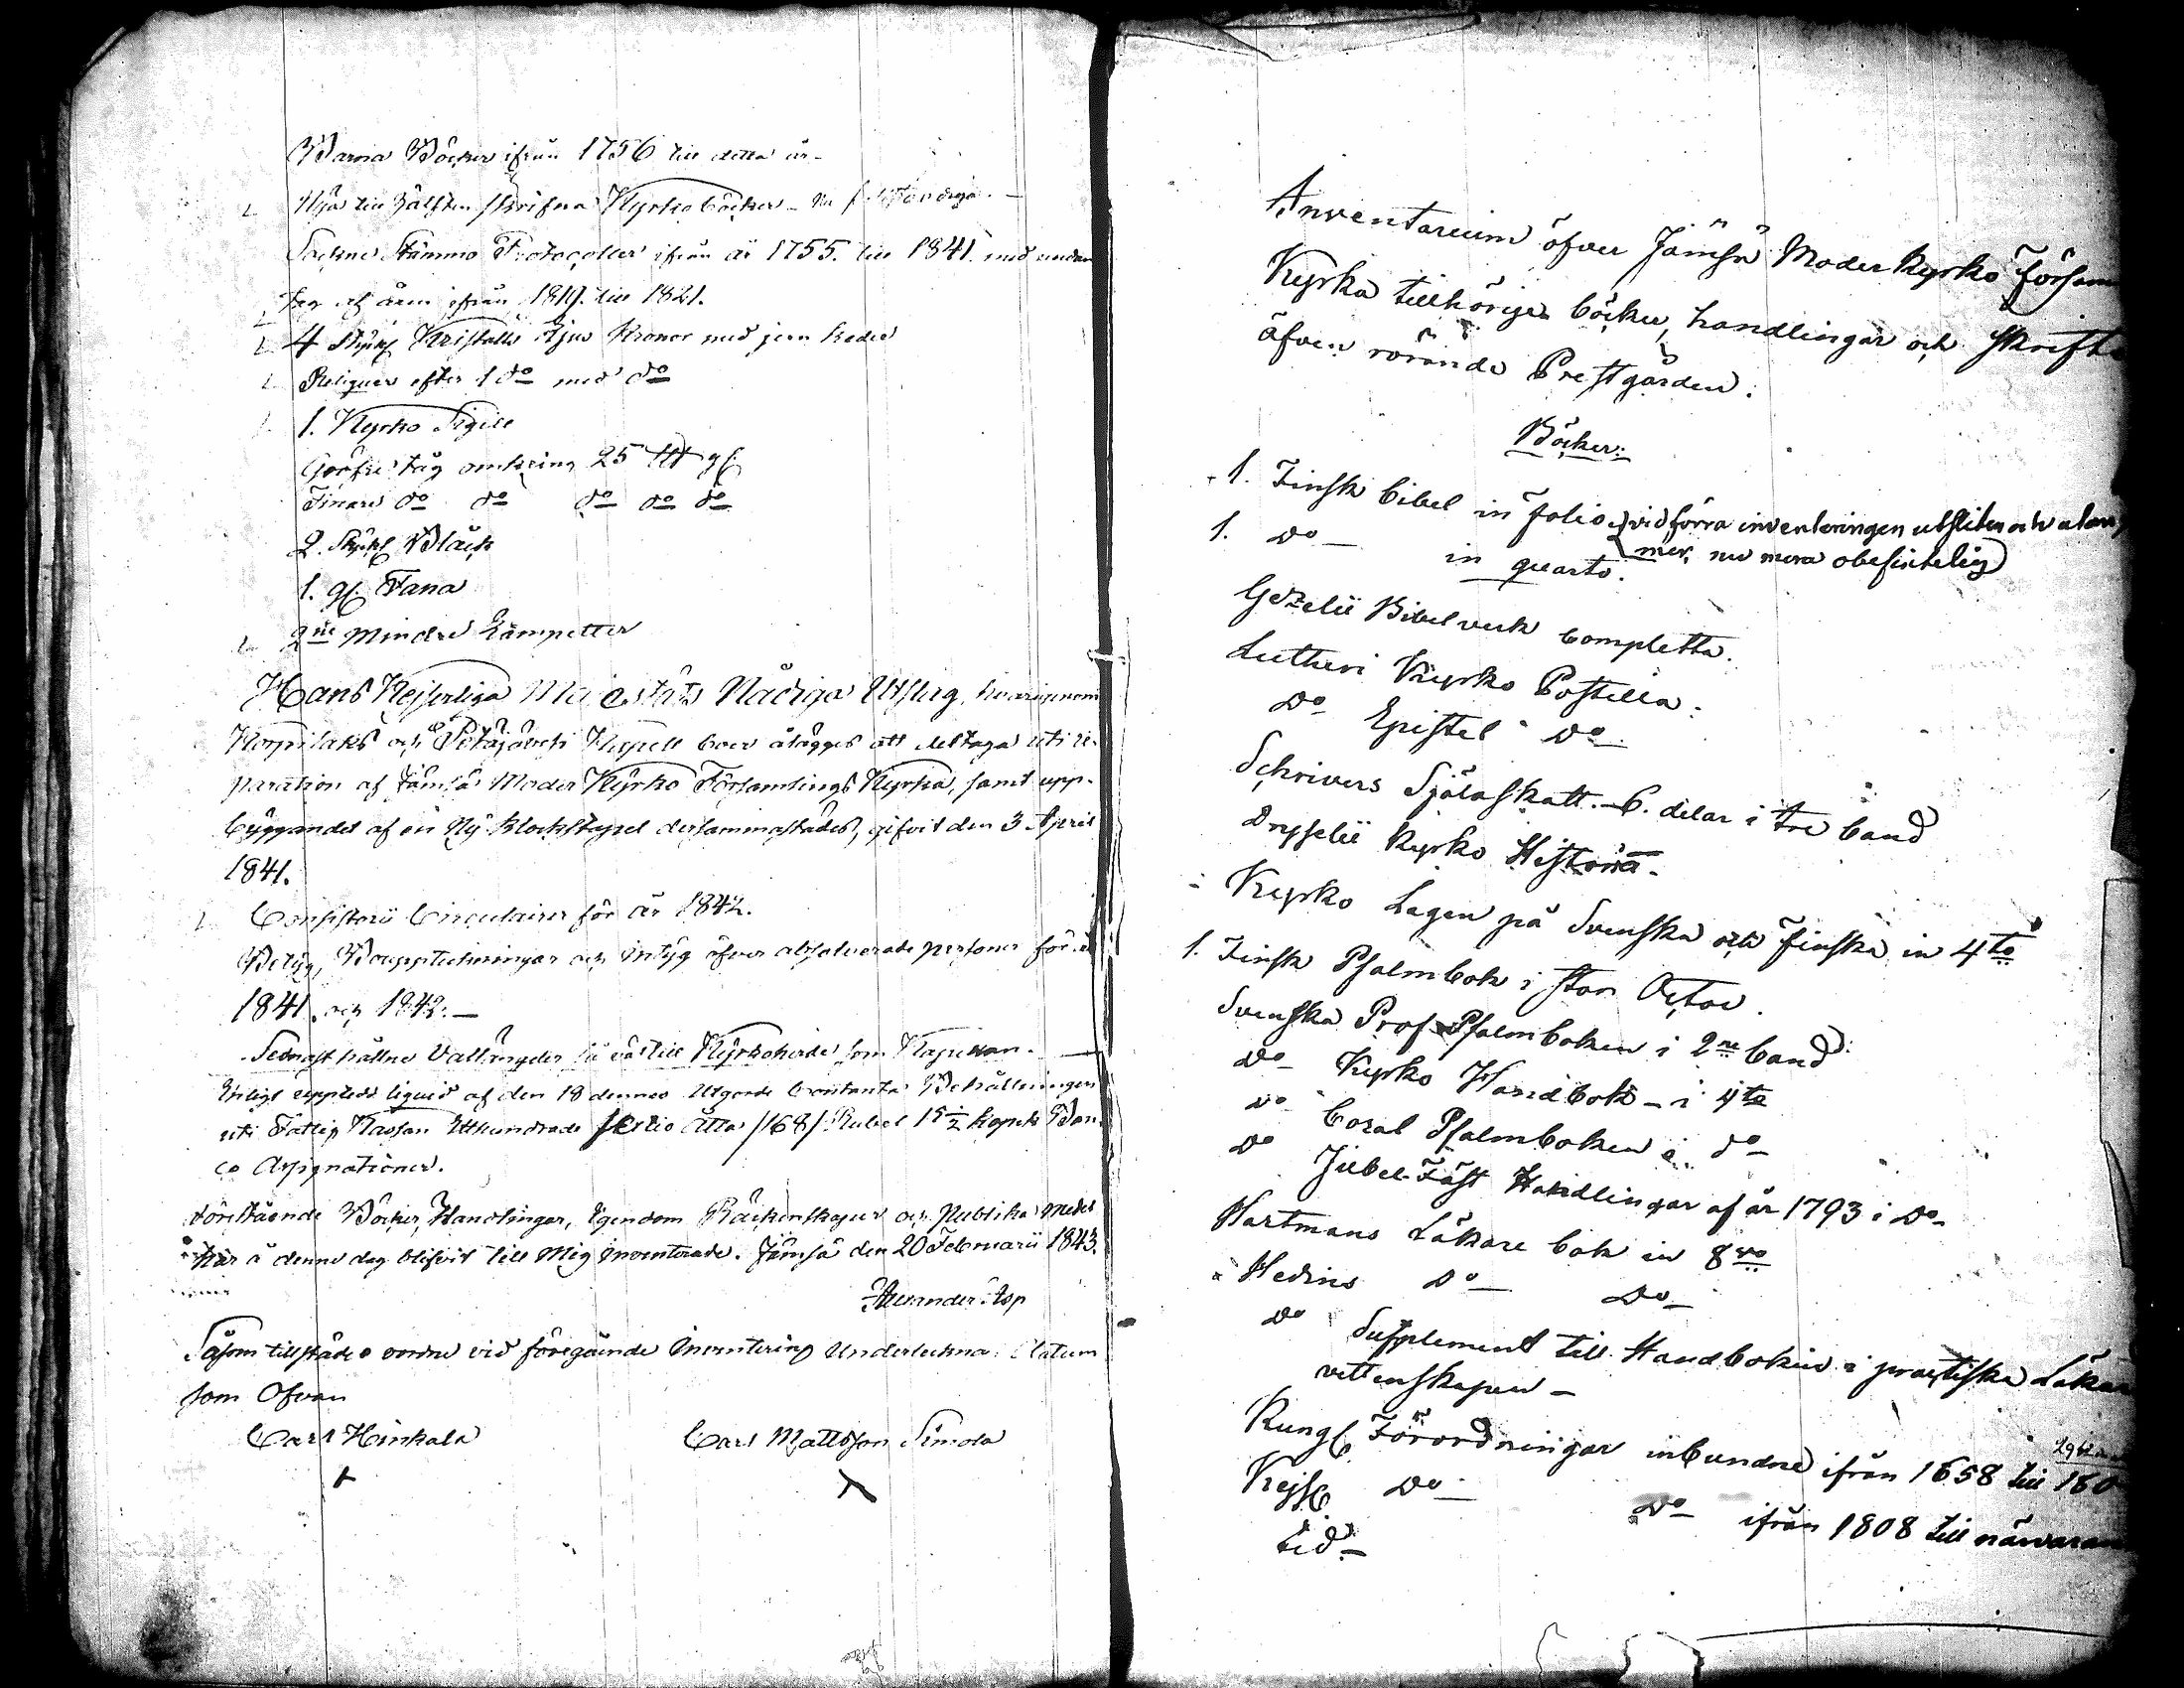 Barna Böcker ifrån 1756 till detta år
Nya till hälften skrifna Kyrko böcker
Sockne Stämmo Protocoller ifrån år 1755. till 1841. med undan
tag af åren ifrån 1819. till 1821.
4 Styck Kristalls Ljus Kronor med jern kedjor
Reliquer efter 1 do med do
1. Kyrko Sigill
Gröfre tåg omkring 25
Finare do do do do do
2. Styck Bläck
1. gl. Fana
2ne Mindre Lampetter
Hans Kejserliga Majestäts Nådiga Utslag, hvarigenom
Korpilaks och Petäjävesi Kapell boer ålägges att deltaga uti re-
paration af Jämsä Moder Kyrko Församlings Kyrka, samt upp-
byggandet af en Ny Klockstapel dersammastädes, gifvit den 3 April
1841.
Consistorii Circulairer för år 1842.
Betyg, Bouppteckningar och Intyg öfver absolverade personer för år
1841. och 1842.
Sednast hållne Vallängder så väl till Kyrkoherde som Kapellan.
Enligt upplöst liquid af den 18 dennes Utgorde Contanta Behållningen
uti Fattig Kassan Etthundrade sextio åtta /168/ Rubel 15 ½ kopek Ban
co Assignationer.
Förestående Böcker, Handlingar, Egendom Räckenskaper och Publika Medel
här å denne dag blifvit till Mig Inventerade. Jämsä den 20 Februarii 1843.
Alexander Asp
Såsom tillstädes vordne vid föregående Inventering Underteckna: Datum
som Ofvan
Carl Hinkala Carl Mattsson Simola
Inventarium öfver Jämsä Moder Kyrko Försam
Kyrka tillhörige böcker, handlingar och Skrifte
äfven rörande Prestgården:
Böcker:
1. Finsk bibel in folio (vid förra inventeringen utsliten och utan
mer, nu mera obefintelig)
1. do in quarto.
Gezelii Bibelverk completta.
Lutheri Kyrko Postilla:
do Epistel do
Schrivers Själaskatt. 6. delar i tre band
Dryselii Kyrko Historia.
Kyrko Lagen på Svenska och Finska in 4to
1. Finsk Psalmbok i stor Octav.
Svenska Prof Psalmboken i 2ne band:
do Kyrko Handbok i 4to
do Coral Psalmboken i do
do Jubel-Fäst Handlingar af år 1793 i do
Hartmans Läkare bok in 8vo
Hedins do do
do Supplement till Handboken i practiska Läkare
vettenskapen
Kungl Förordningar inbundne ifrån 1658 till 180
Kejsl. do do ifrån 1808 till närvaran
tid.